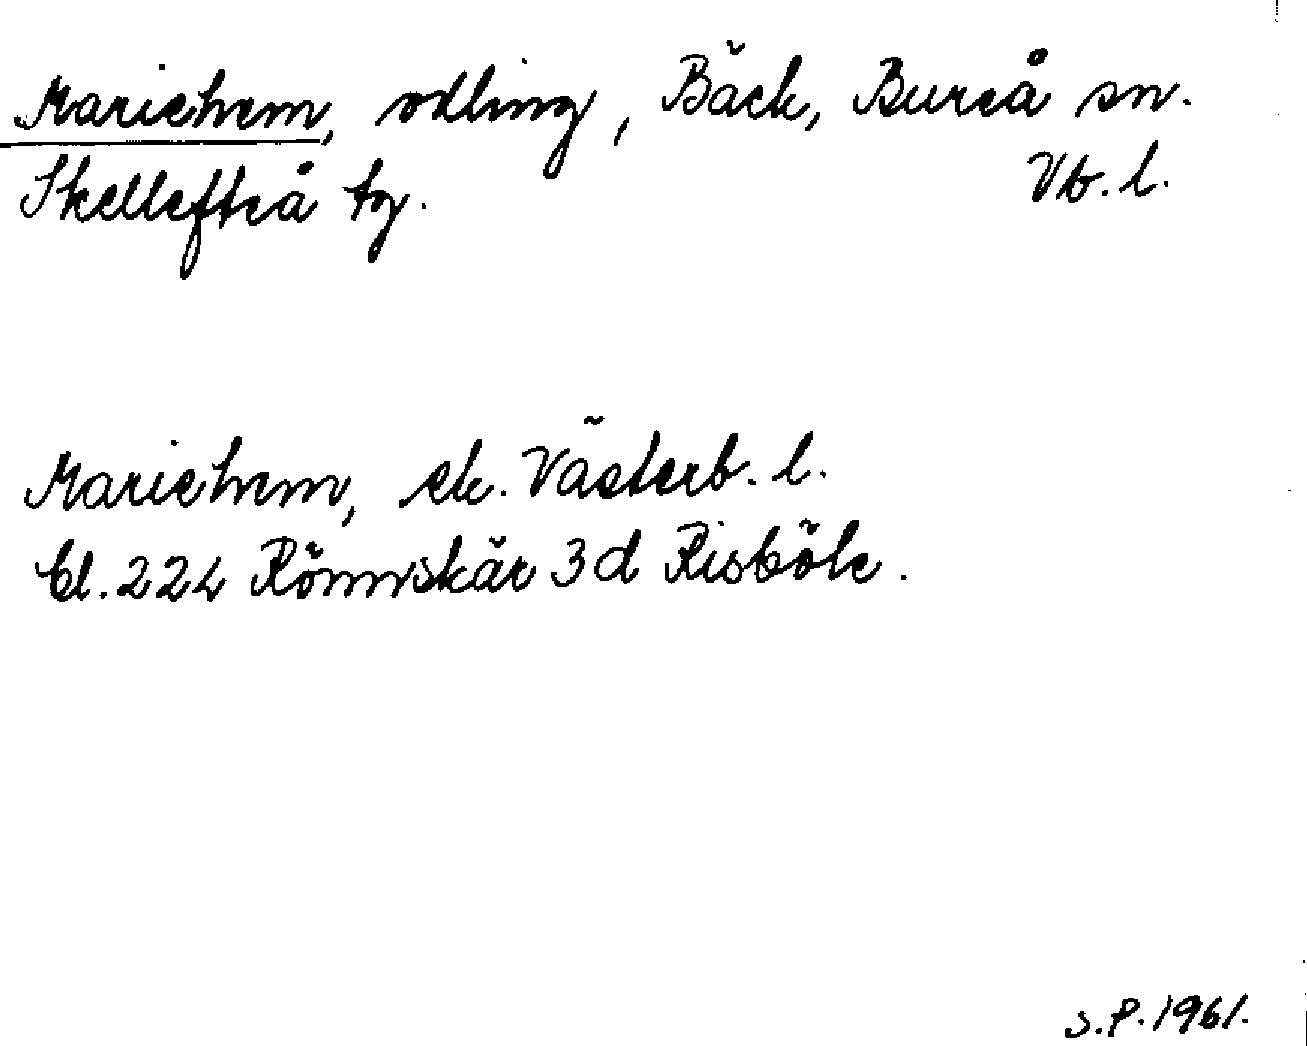 Mariehem, odling, Bäck, Bureå sn.
Skellefteå tg. Vb. l.
Mariehem, ek. Västerb. l.
Bl. 22L Rönnskär 3d Risböle.
S.P. 1961.